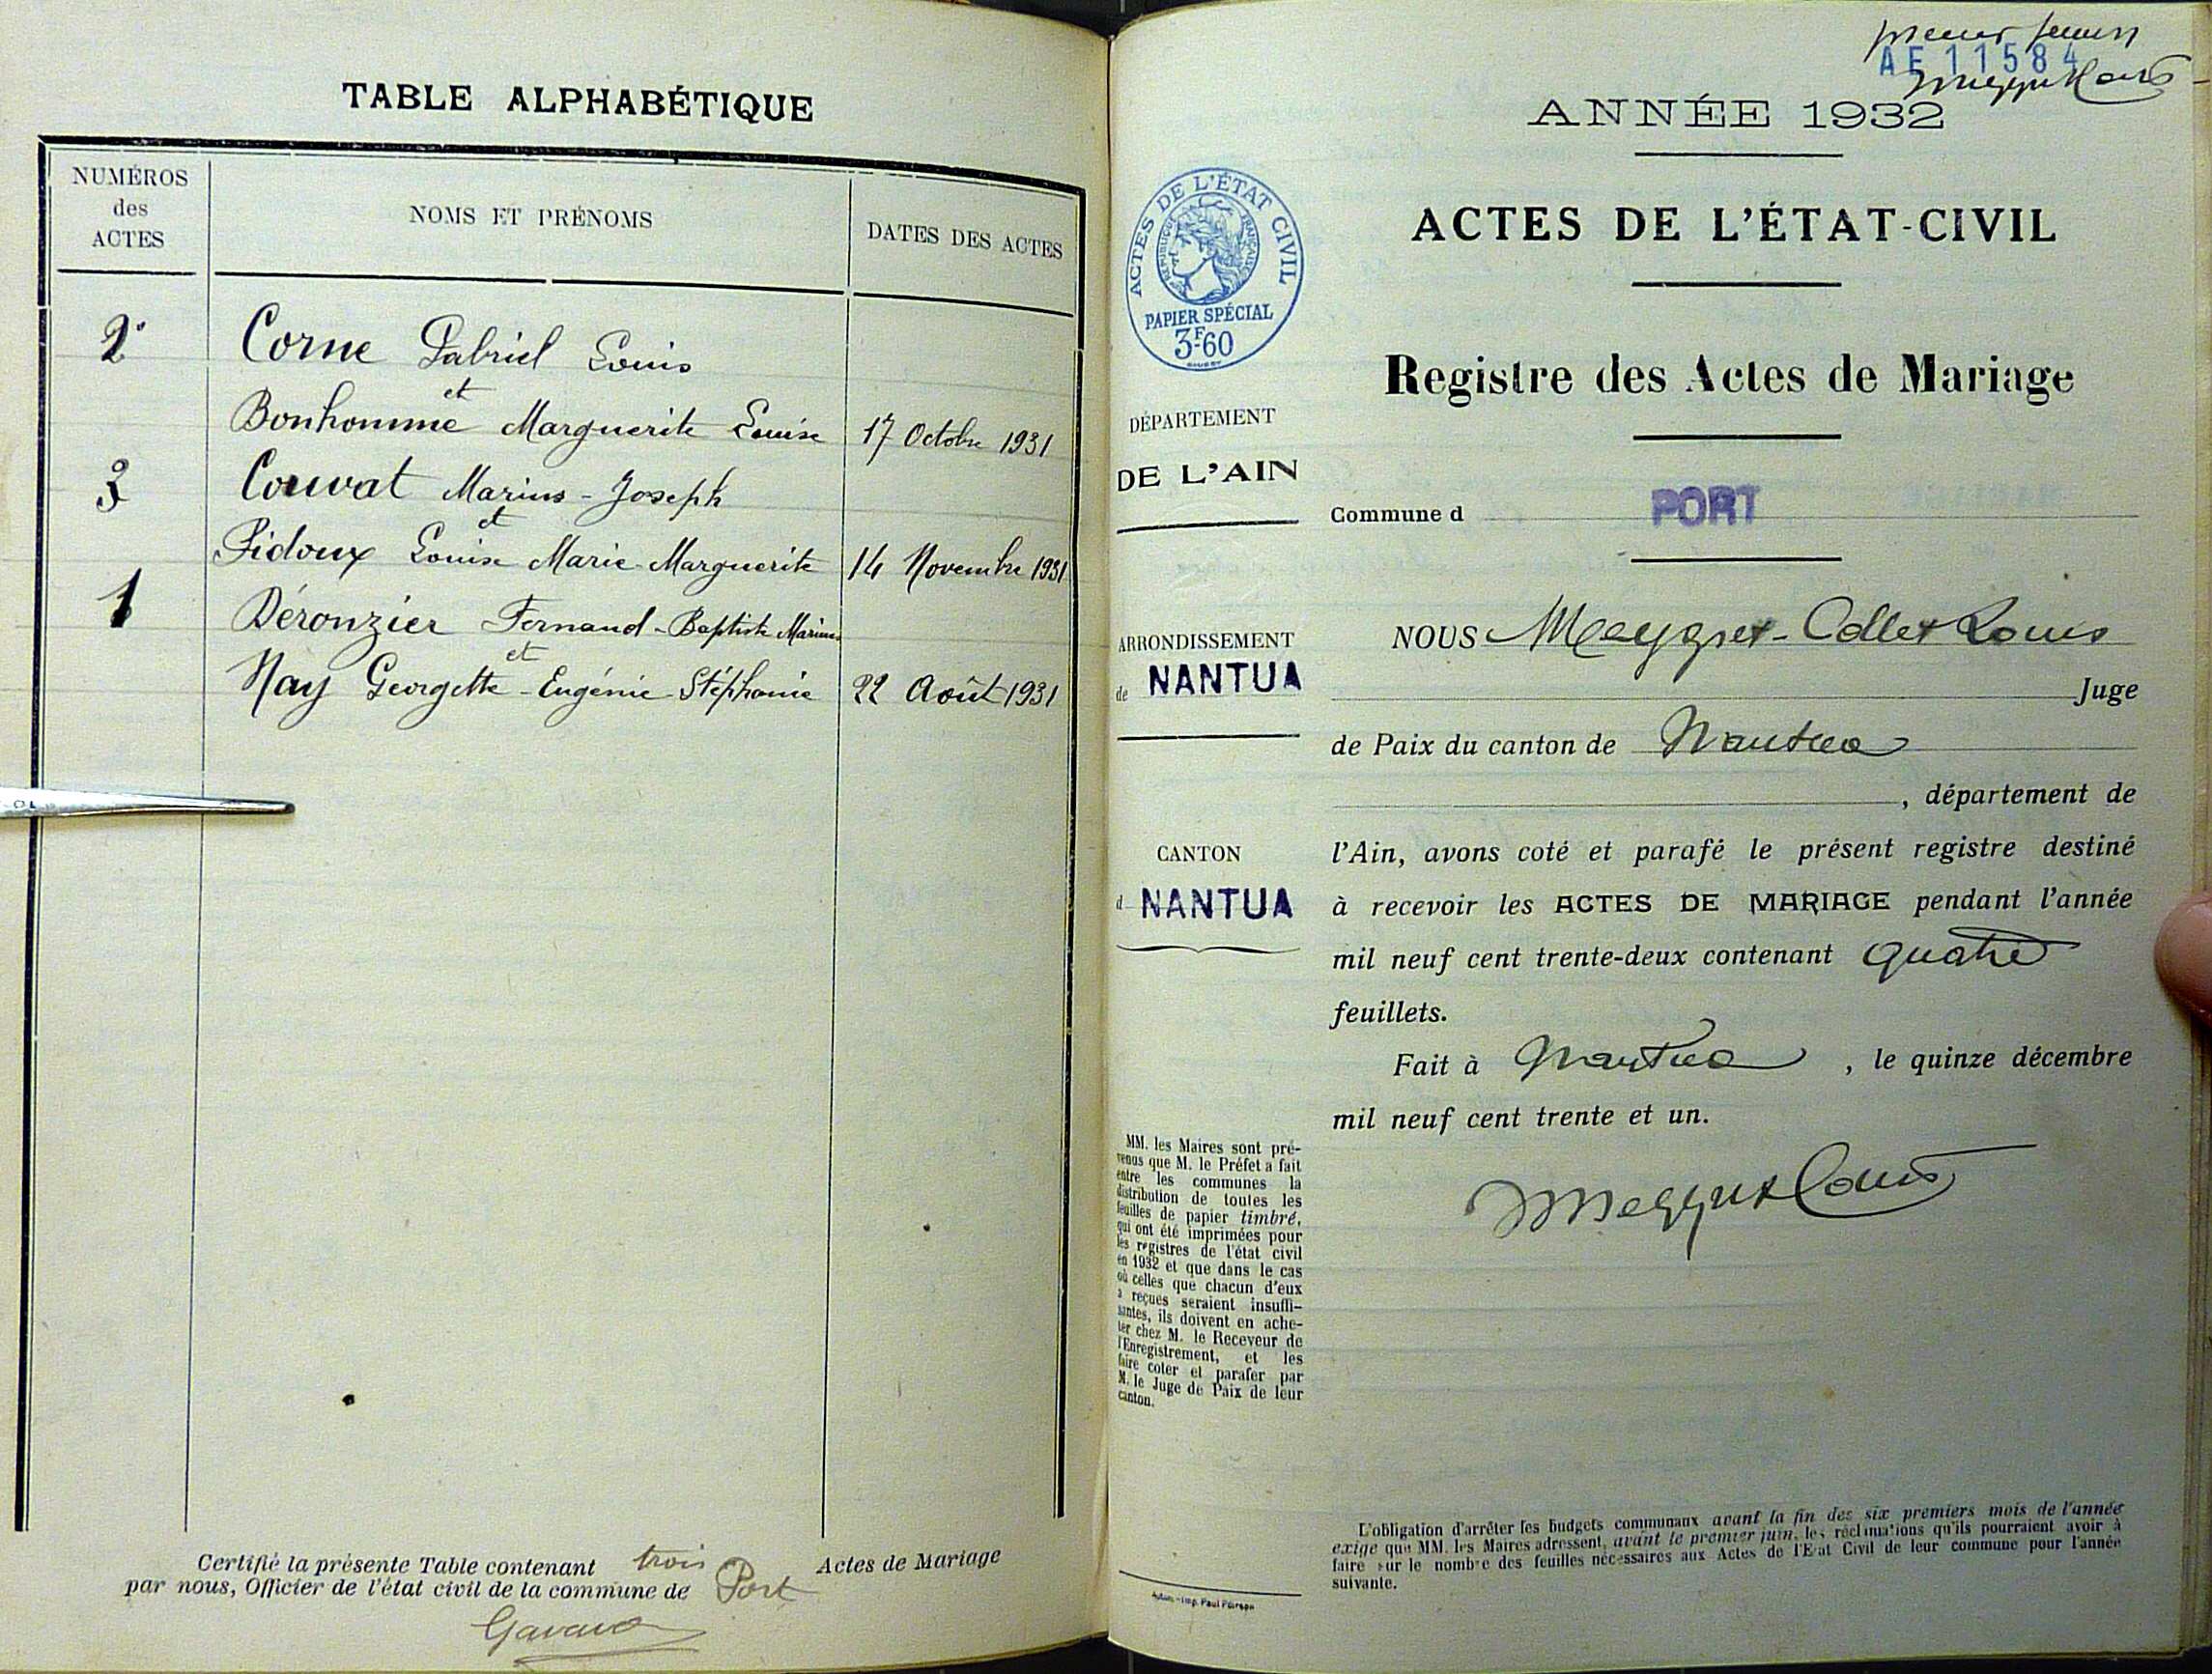 TABLE ALPHABÉTIQUE
NUMÉROS
des
ACTES
NOMS ET PRÉNOMS
DATES DES ACTES
2
Corne Gabriel Louis
et
Bonhomme Marguerite Louise 17 Octobre 1931
3
Couvat Marius - Joseph
et
Pidoux Louise Marie-Marguerite 14 Novembre 1931
1
Déronzier Fernand-Baptiste Marius
et
Nay Georgette-Eugénie-Stéphanie 22 Août 1931
Certifié la présente Table contenant trois Actes de Mariage
par nous, Officier de l'état civil de la commune de Port
premier
AF 11584
ANNÉE 1932
ACTES DE L'ÉTAT CIVIL
RÉPUBLIQUE FRANÇAISE
PAPIER SPÉCIAL
3F60
ACTES DE L'ÉTAT-CIVIL
Registre des Actes de Mariage
DÉPARTEMENT
DE L'AIN
Commune d PORT
ARRONDISSEMENT
de NANTUA
CANTON
d NANTUA
NOUS Meygret-Collet Louis
Juge
de Paix du canton de Nantua
, département de
l'Ain, avons coté et parafé le présent registre destiné
à recevoir les ACTES DE MARIAGE pendant l'année
mil neuf cent trente-deux contenant quatre
feuillets.
Fait à Nantua , le quinze décembre
mil neuf cent trente et un.
MM. les Maires sont pré-
venus que M. le Préfet a fait
entre les communes la
distribution de toutes les
feuilles de papier timbré,
qui ont été imprimées pour
les registres de l'état civil
en 1932 et que dans le cas
où celles que chacun d'eux
a reçues seraient insuffi-
santes, ils doivent en ache-
ter chez M. le Receveur de
l'Enregistrement, et les
faire coter et parafer par
M. le Juge de Paix de leur
canton.
L'obligation d'arrêter les budgets communaux avant la fin des six premiers mois de l'année
exige que MM. les Maires adressent, avant le premier juin, les réclamations qu'ils pourraient avoir à
faire sur le nombre des feuilles nécessaires aux Actes de l'Etat Civil de leur commune pour l'année
suivante.
Imp. Paul